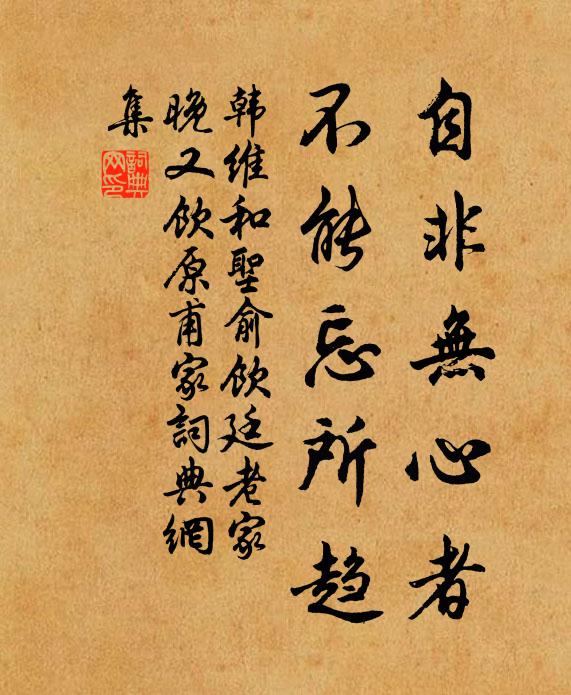 自非無心者
不能忘所趋
韩维和聖俞饮廷老家
晚又饮原甫家詞典網
集
詞典網印